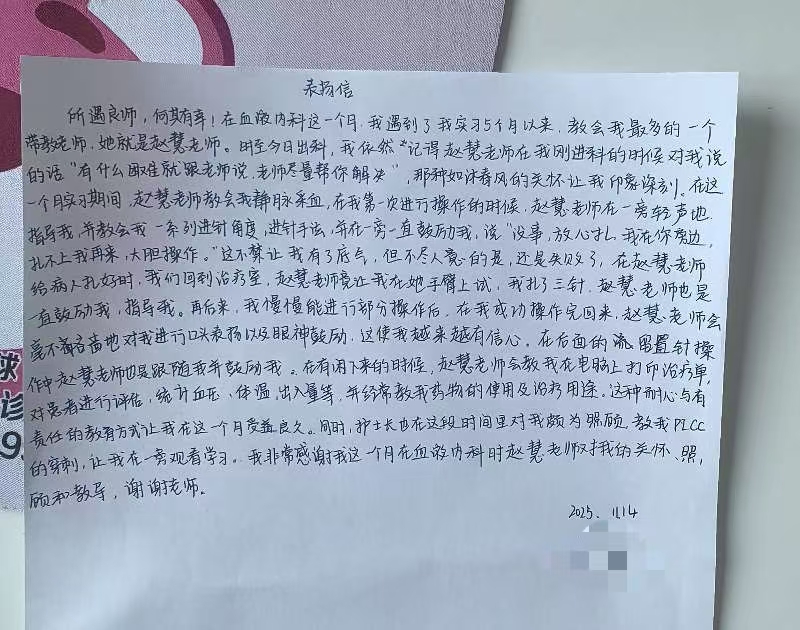 表扬信
所遇良师，何其有幸！在血液内科这一个月，我遇到了我实习5个月以来，教会我最多的一个
带教老师，她就是赵慧老师。时至今日出科，我依然记得赵慧老师在我刚进科的时候对我说
的话"有什么困难就跟老师说，老师尽量帮你解决"，那种如沐春风的关怀让我印象深刻。在这
一个月实习期间，赵慧老师教会我静脉采血，在我第一次进行操作的时候，赵慧老师在一旁轻声地
指导我，并教会我一系列进针角度，进针手法，并在一旁一直鼓励我，说"没事，放心扎，我在你旁边，
扎不上我再来，大胆操作。"这不禁让我有了底气，但不尽人意的是，还是失败了，在赵慧老师
给病人扎好时，我们回到治疗室，赵慧老师竟让我在她手臂上试，我扎了三针，赵慧老师也是
一直鼓励我，指导我。再后来，我慢慢能进行部分操作后，在我成功操作完回来，赵慧老师会
毫不吝啬地对我进行口头表扬以及眼神鼓励，这使我越来越有信心。在后面的流留置针操
作中赵慧老师也是跟随我并鼓励我。在有闲下来的时候，赵慧老师会教我在电脑上打印治疗单，
对患者进行评估，统计血压、体温、出入量等，并经常教我药物的使用及治疗用途。这种耐心与有
责任的教育方式让我在这一个月受益良久。同时，护士长也在这段时间里对我颇为照顾，教我PICC
的穿刺，让我在一旁观看学习。我非常感谢我这一个月在血液内科时赵慧老师对我的关怀、照，
顾和教导，谢谢老师。
2025、11.14
球
诊
9